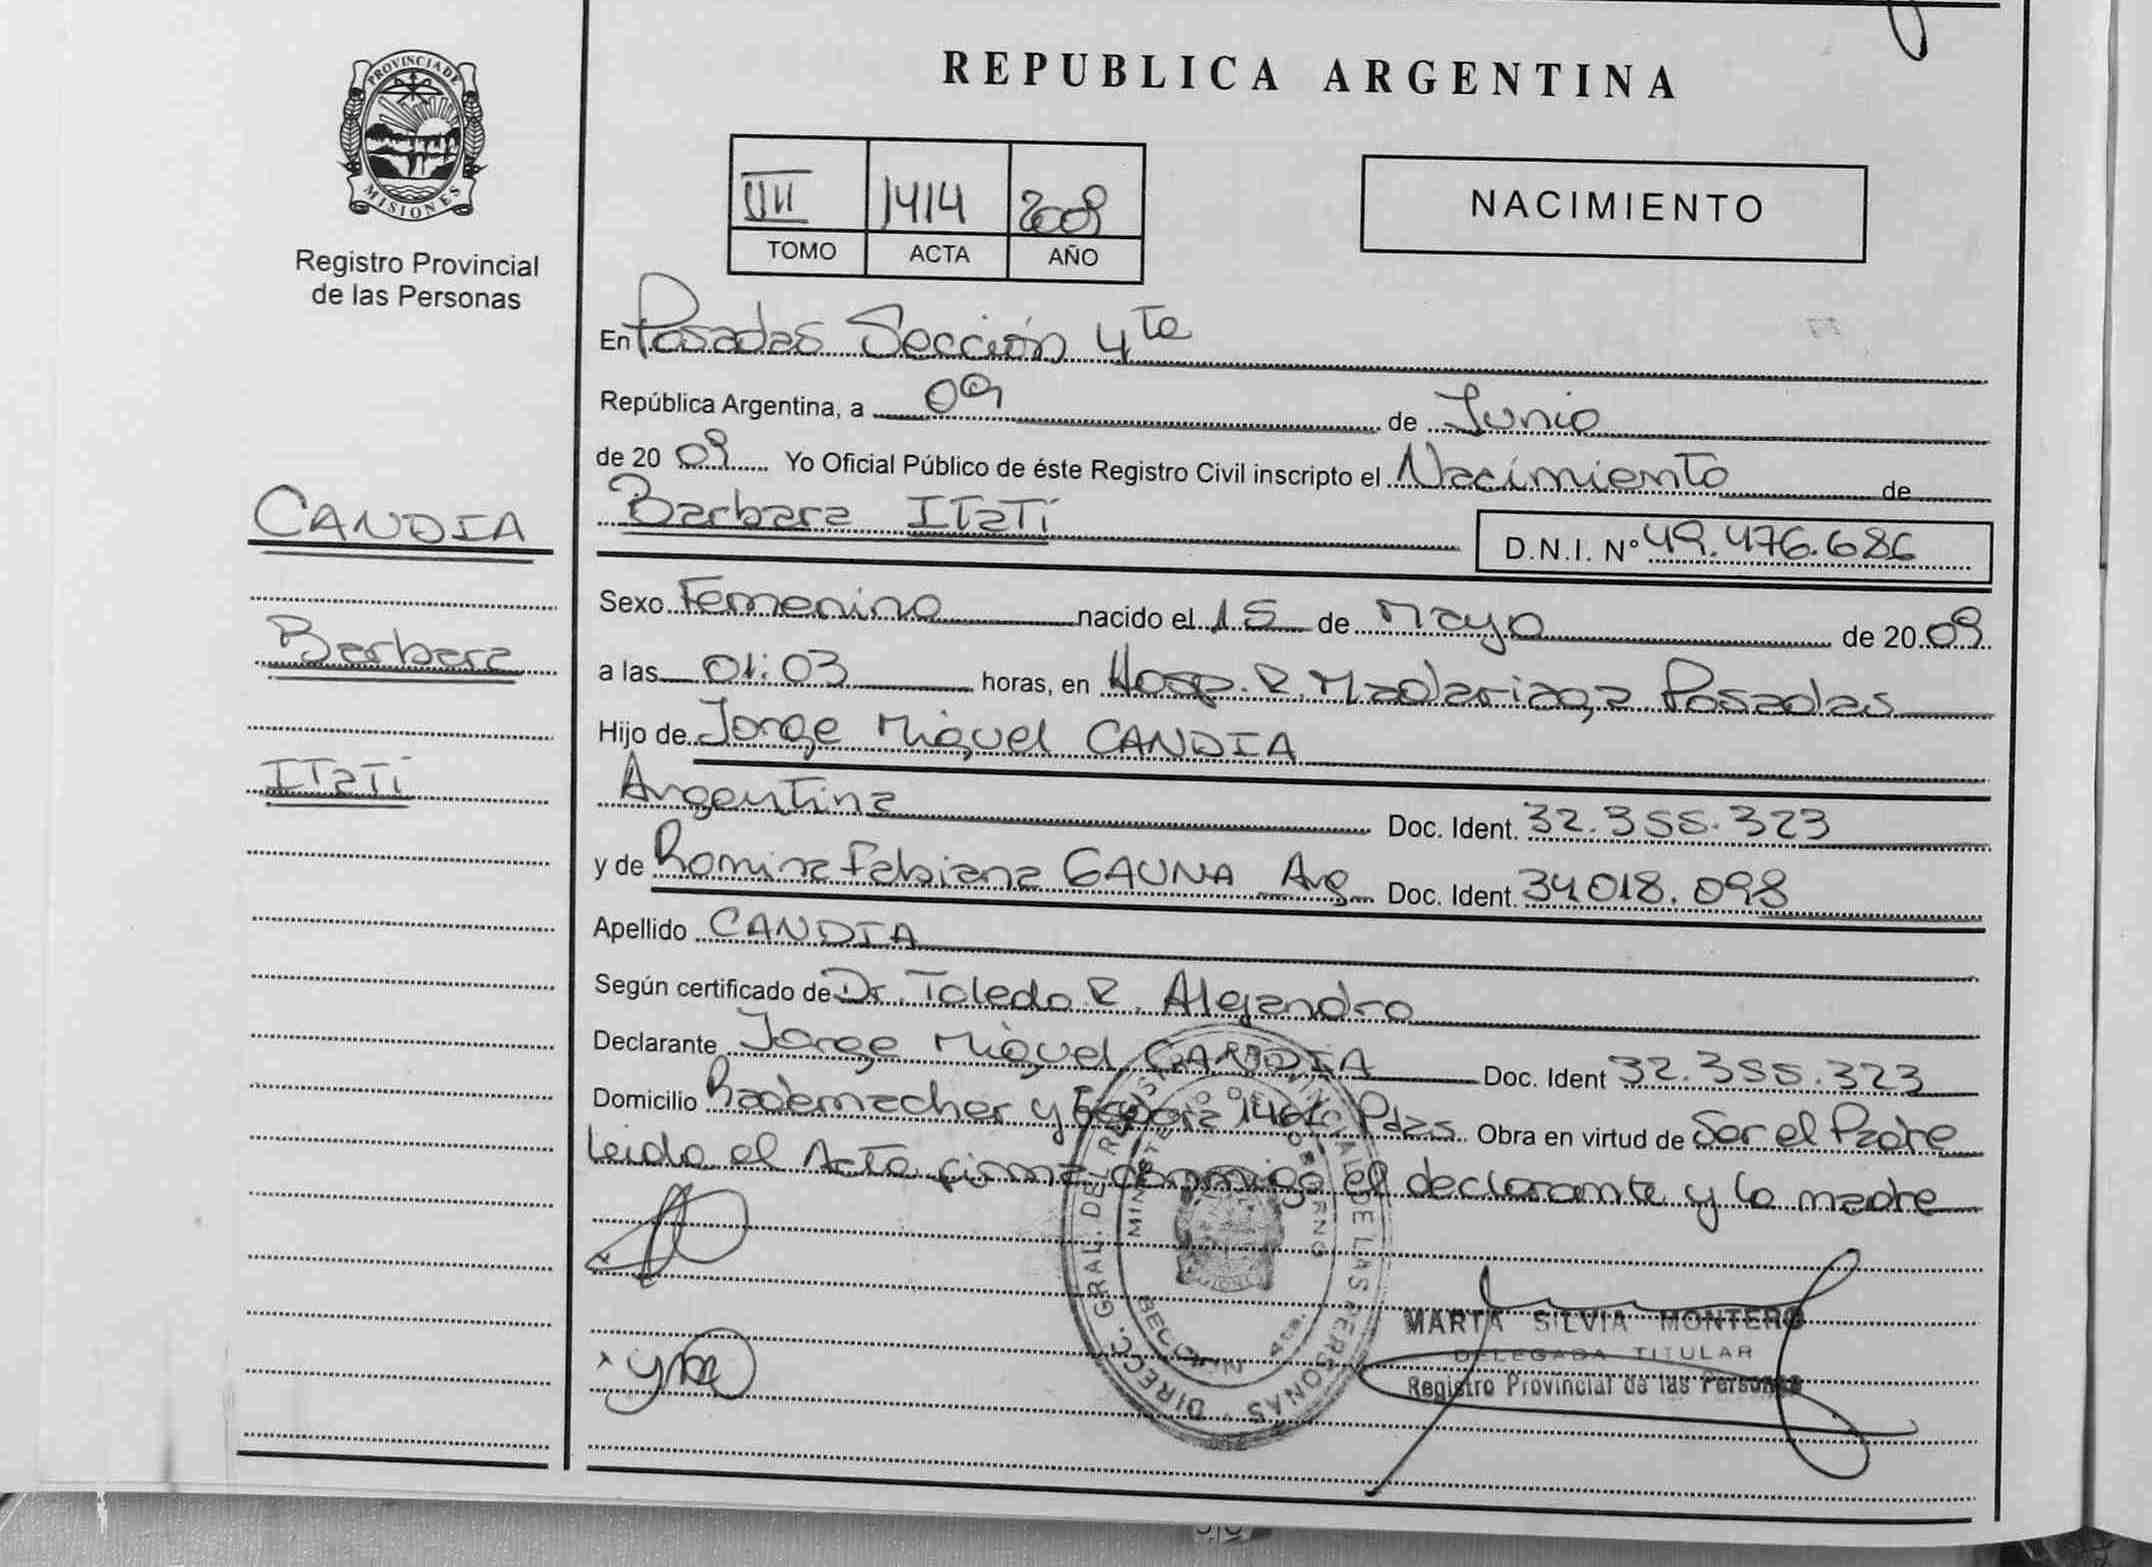 PROVINCIA DE
MISIONES
Registro Provincial
de las Personas
CANDIA
Barbara
ITATI
REPUBLICA ARGENTINA
1414 2009
TOMO ACTA AÑO
NACIMIENTO
En Posadas Sección 4ta
República Argentina, a 09 de Junio
de 20 09 Yo Oficial Público de éste Registro Civil inscripto el Nacimiento de
Barbara ITATí D.N.I. Nº 49.476.686
Sexo Femenino nacido el 15 de Mayo de 20 09
a las 01:03 horas, en Hosp. R. Madariaga Posadas
Hijo de Jorge Miguel CANDIA
Argentina Doc. Ident. 32.355.323
y de Romina Fabiana GAUNA Arg Doc. Ident. 34.018.098
Apellido CANDIA
Según certificado de Dr. Toledo R. Alejandro
Declarante Jorge Miguel CANDIA Doc. Ident 32.355.323
Domicilio Rademacher y Pdas. Obra en virtud de Ser el Padre
Leido el Acta firma conmigo el declarante y la madre
DIRECC. GRAL. DEL REGIST PROVINCIAL DE LAS PERSONAS
MINISTERIO DE GOBIERNO
SECCION 4ta.
MARTA SILVIA MONTERO
DELEGADA TITULAR
Registro Provincial de las Personas